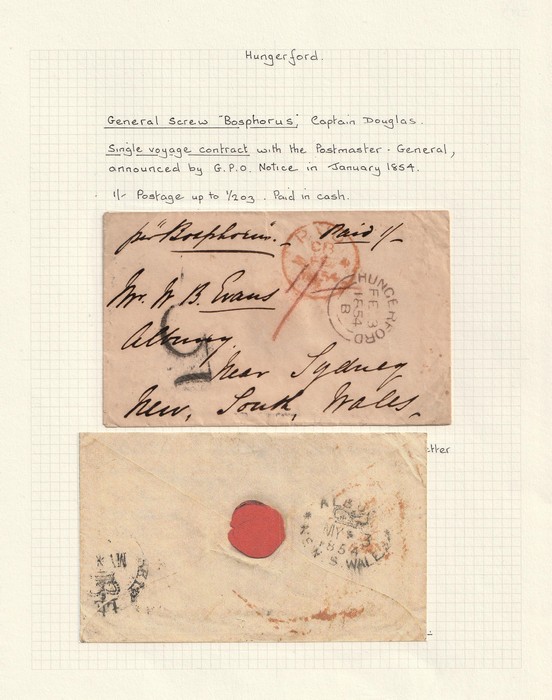 Hungerford.
General Screw "Bosphorus", Captain Douglas.
Single voyage contract with the Postmaster-General,
announced by G.P.O. Notice in January 1854.
1/- Postage up to 1/2oz. Paid in cash.
per Bosphorus. Paid 1/-
HUNGERFORD
FE 3
1854
B
Mr. W. B. Evans
Albury.
Near Sydney
New, South, Wales,
ALBURY
MY 3
1854
N.S. WALES